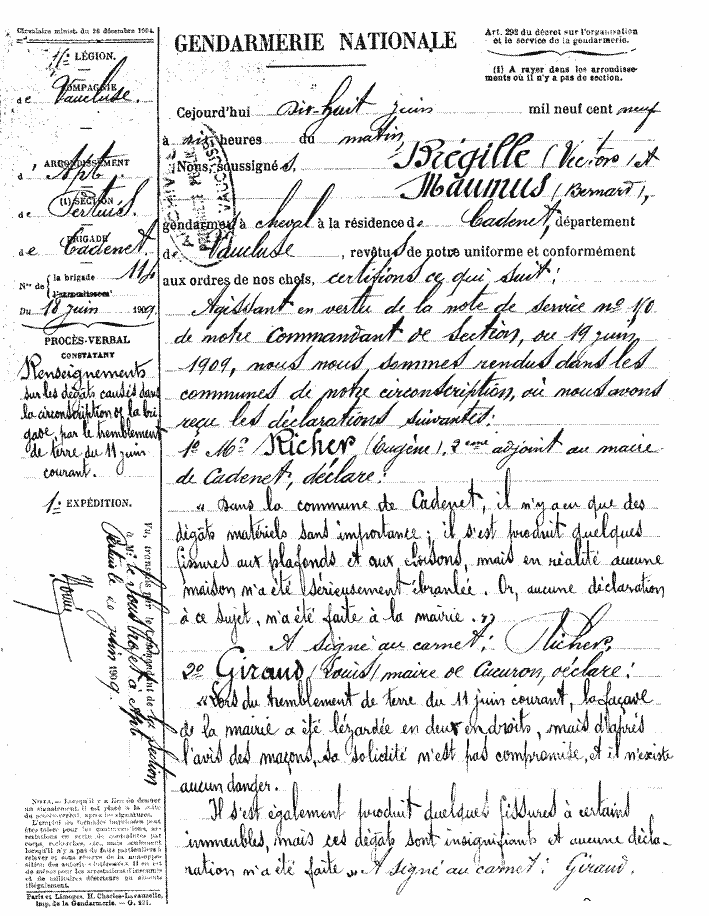 Circulaire minist. du 26 décembre 1904.
15e LÉGION.
COMPAGNIE
de Vaucluse.
ARRONDISSEMENT
d'Apt
(1) SECTION
de Pertuis.
BRIGADE
de Cadenet.
Nos de la brigade 114
l'arrondissement
Du 18 juin 1909
PROCÈS-VERBAL
CONSTATANT
Renseignements
sur les dégâts causés dans
la circonscription de la bri
gade, par le tremblement
de terre du 11 juin
courant.
1e EXPÉDITION.
Vu, transmis par le Commandant de la section
à Mr le Sous Préfet à Apt
Pertuis le 20 juin 1909.
NOTA. — Lorsqu'il y a lieu de donner
un signalement, il est placé à la suite
du procès-verbal, après les signatures.
L'emploi de formules imprimées peut
être toléré pour les contraventions, ar-
restations en vertu de contraintes par
corps, recherches, etc., mais seulement
lorsqu'il n'y a pas de faits particuliers à
relever et sous réserve de la non-oppo-
sition des autorités intéressées. Il en est
de même pour les arrestations d'insoumis
et de militaires déserteurs ou absents
illégalement.
Paris et Limoges, H. Charles-Lavauzelle,
Imp. de la Gendarmerie. — G. 221.
GENDARMERIE NATIONALE
Art. 292 du décret sur l'organisation
et le service de la gendarmerie.
(1) A rayer dans les arrondisse-
ments où il n'y a pas de section.
Cejourd'hui dix-huit juin mil neuf cent neuf
à six heures du matin,
Nous, soussignés, Brégille (Victor) et
Maumus (Bernard),
gendarmes à cheval à la résidence de Cadenet, département
de Vaucluse, revêtus de notre uniforme et conformément
aux ordres de nos chefs, certifions ce qui suit:
Agissant en vertu de la note de service no 10
de notre Commandant de Section, du 19 juin
1909, nous nous, sommes rendus dans les
communes de notre circonscription, où nous avons
reçu les déclarations suivantes:
1o Mr Richer (Eugène), 2eme adjoint au maire
de Cadenet, déclare:
"Dans la commune de Cadenet, il n'y a eu que des
dégâts matériels sans importance; il s'est produit quelques
fissures aux plafonds et aux cloisons, mais en réalité aucune
maison n'a été sérieusement ébranlée. Or, aucune déclaration
à ce sujet, n'a été faite à la mairie."
A signé au carnet: Richer.
2o Giraud (Louis) maire de Cucuron, déclare:
"Lors du tremblement de terre du 11 juin courant, la façade
de la mairie a été lézardée en deux endroits, mais d'après
l'avis des maçons, sa solidité n'est pas compromise, et il n'existe
aucun danger.
Il s'est également produit quelques fissures à certains
immeubles, mais ces dégâts sont insignifiants et aucune décla-
ration n'a été faite" A signé au carnet: Giraud.